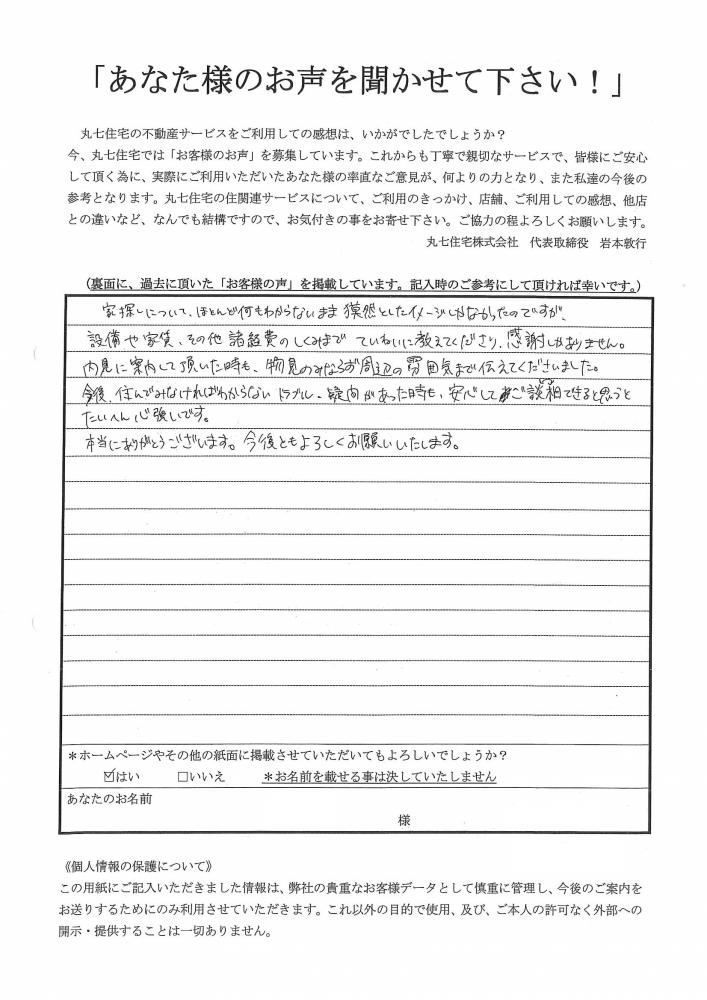 「あなた様のお声を聞かせて下さい！」
丸七住宅の不動産サービスをご利用しての感想は、いかがでしたでしょうか？
今、丸七住宅では「お客様のお声」を募集しています。これからも丁寧で親切なサービスで、皆様にご安心
して頂く為に、実際にご利用いただいたあなた様の率直なご意見が、何よりの力となり、また私達の今後の
参考となります。丸七住宅の住関連サービスについて、ご利用のきっかけ、店舗、ご利用しての感想、他店
との違いなど、なんでも結構ですので、お気付きの事をお寄せ下さい。ご協力の程よろしくお願いします。
丸七住宅株式会社　代表取締役　岩本敦行
（裏面に、過去に頂いた「お客様の声」を掲載しています。記入時のご参考にして頂ければ幸いです。）
家探しについて、ほとんど何もわからないまま漠然としたイメージしかなかったのですが、
設備や家賃、その他諸経費のしくみまで ていねいに教えてくださり、感謝しかありません。
内見に案内して頂いた時も、物見のみならず周辺の雰囲気まで伝えてくださいました。
今後、住んでみなければわからないトラブル、疑問があった時も、安心してご相談できると思うと
たいへん心強いです。
本当にありがとうございます。今後ともよろしくお願いいたします。
＊ホームページやその他の紙面に掲載させていただいてもよろしいでしょうか？
☑はい　□いいえ　＊お名前を載せる事は決していたしません
あなたのお名前
様
《個人情報の保護について》
この用紙にご記入いただきました情報は、弊社の貴重なお客様データとして慎重に管理し、今後のご案内を
お送りするためにのみ利用させていただきます。これ以外の目的で使用、及び、ご本人の許可なく外部への
開示・提供することは一切ありません。